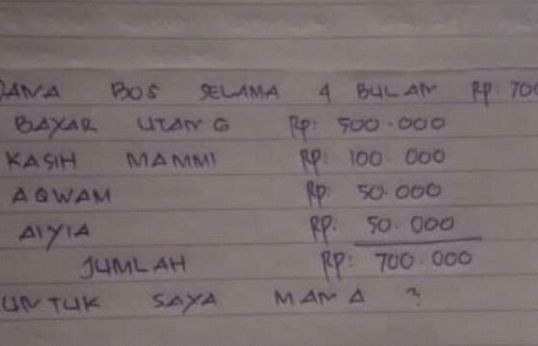 DANA BOS SELAMA 4 BULAN RP: 700
BAYAR UTANG RP: 500.000
KASIH MAMMI RP: 100.000
AQWAM RP: 50.000
AIYIA RP: 50.000
JUMLAH RP: 700.000
UNTUK SAYA MANA ?